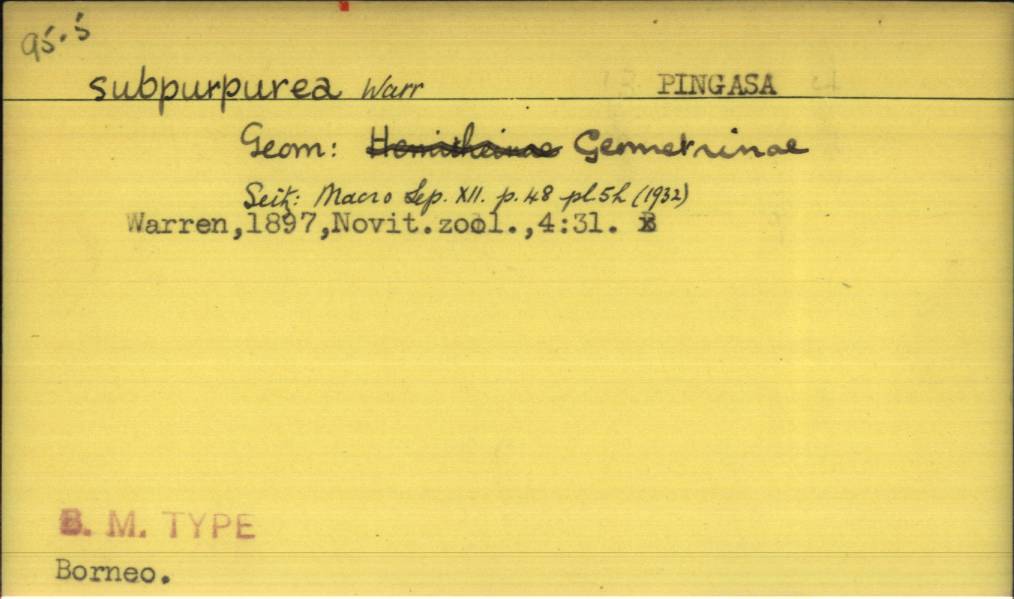 95.5
subpurpurea Warr PINGASA
Geom: Hemitheinae Geometrinae
Seitz: Macro Lep. XII. p.48 pl.5h (1932)
Warren,1897,Novit.zool.,4:31.
B. M. TYPE
Borneo.